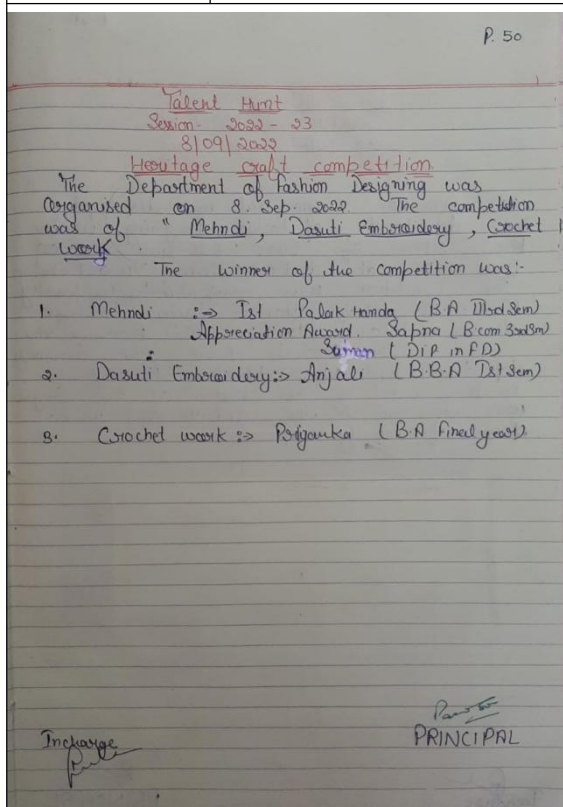 P. 50
Talent Hunt
Session- 2022 - 23
8/09/2022
Heritage craft competition
The Department of Fashion Designing was
organised on 8. Sep. 2022 The competition
was of " Mehndi, Dasuti Embroidery, Crochet
work.
The winner of the competition was:-
1. Mehndi :-> Ist Palak Handa (B.A IIIrd Sem)
Appreciation Award. Sapna (B com 3rd Sm)
: Suman (DIP in FD)
2. Dasuti Embroidery:-> Anjali (B.B.A Ist Sem)
3. Crochet work :-> Priyanka (B.A Final year)
Incharge
PRINCIPAL